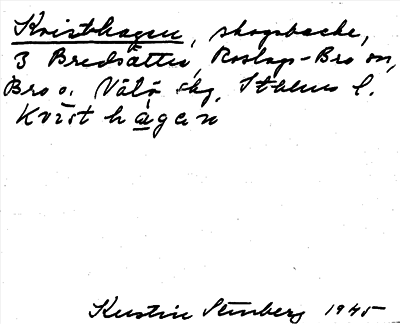 Kvisthagen, skogsbacke,
3 Bredsätter, Roslags-Bro sn,
Bro o. Vätö skg, Sthlms l.
Kvist hagan
Kerstin Stenberg 1945